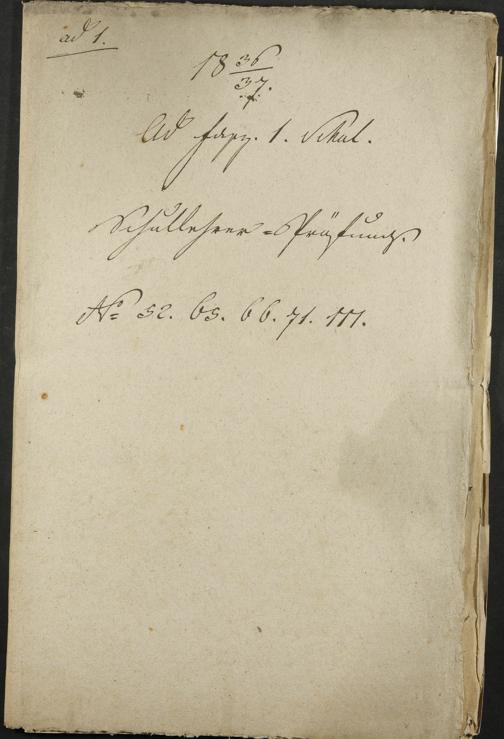 ad 1.
18 36/37.
Ad Fasz. 1. Schul.
Schullehrer-Prüfung.
No 52. 65. 66. 71. 111.